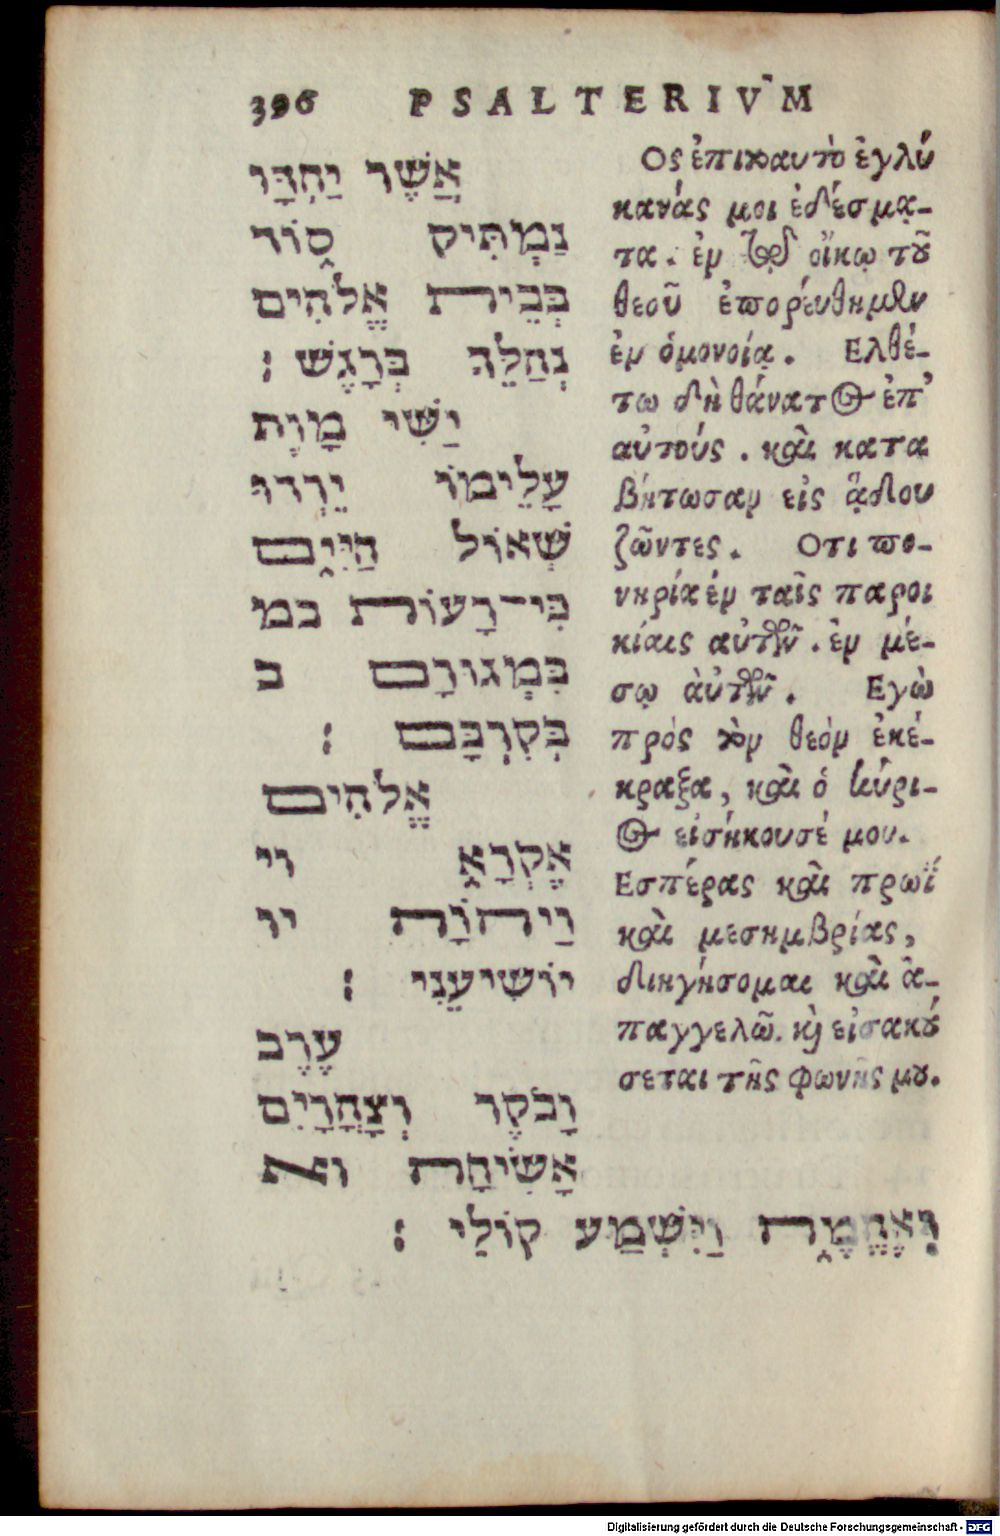 396 PSALTERIVM
אֲשֶׁר יַחְדָּו
נַמְתִּיק סוֹד
בְּבֵית אֱלֹהִים
נְהַלֵּךְ בְּרָגֶשׁ ׃
יַשִּׁי מָוֶת
עָלֵימוֹ יֵרְדוּ
שְׁאוֹל חַיִּים
כִּי־רָעוֹת במ
בִּמְגוּרָם ב
בְּקִרְבָּם ׃
אֱלֹהִים
אֶקְרָא וי
וַיהוָֹה יו
יוֹשִׁיעֵנִי ׃
עֶרֶב
וָבֹקֶר וְצָהֳרַיִם
אָשִׂיחָה וא
וְאֶהֱמֶה וַיִּשְׁמַע קוֹלִי ׃
Ος ἐπιτοαυτὸ ἐγλύ
κανάς μοι ἐδέσμα-
τα. ἐν τῷ οἴκῳ τοῦ
θεοῦ ἐπορεύθημεν
ἐν ὁμονοίᾳ. Ελθέ-
τω δὴ θάνατος ἐπ'
αὐτούς. καὶ κατα
βήτωσαν εἰς ᾅδου
ζῶντες. Οτι πο-
νηρία ἐν ταῖς παροι
κίαις αὐτῶν. ἐν μέ-
σῳ αὐτῶν. Εγὼ
πρὸς τὸν θεὸν ἐκέ-
κραξα, καὶ ὁ κύρι-
ος εἰσήκουσέ μου.
Εσπέρας καὶ πρωῒ
καὶ μεσημβρίας,
διηγήσομαι καὶ ἀ-
παγγελῶ. καὶ εἰσακού
σεται τῆς φωνῆς μου.
Digitalisierung gefördert durch die Deutsche Forschungsgemeinschaft - DFG